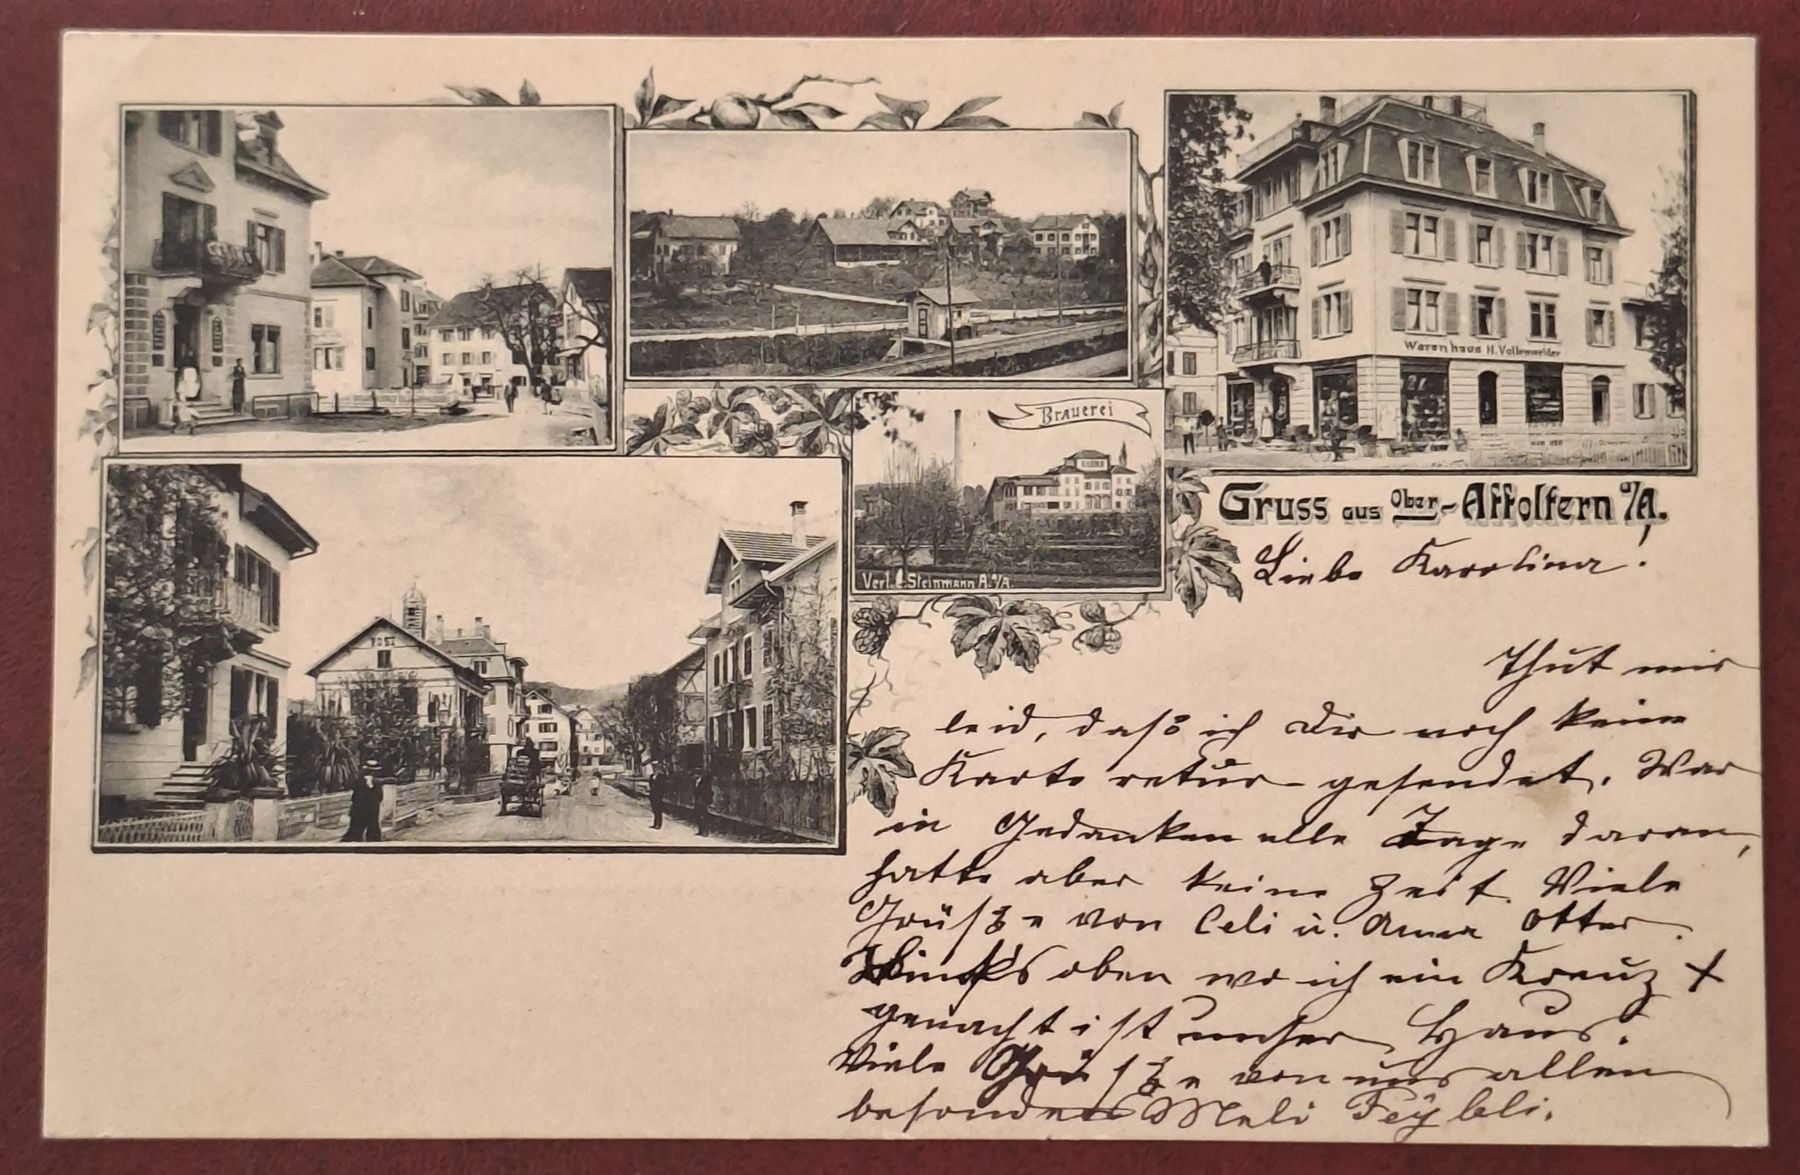 Brauerei
Warenhaus H. Vollenweider
POST
Verl. Steinmann A. a/A.
Gruss aus Ober-Affoltern a/A.
Liebe Karolina!
Thut mir
leid, daß ich Dir noch keine
Karte retur gesendet. War
in Gedanken alle Tage daran,
hatte aber keine Zeit. Viele
Grüße von Celi u. Anna Otter.
Links oben wo ich ein Kreuz +
gemacht ist unser Haus.
Viele Grüße von uns allen
besonders Meli